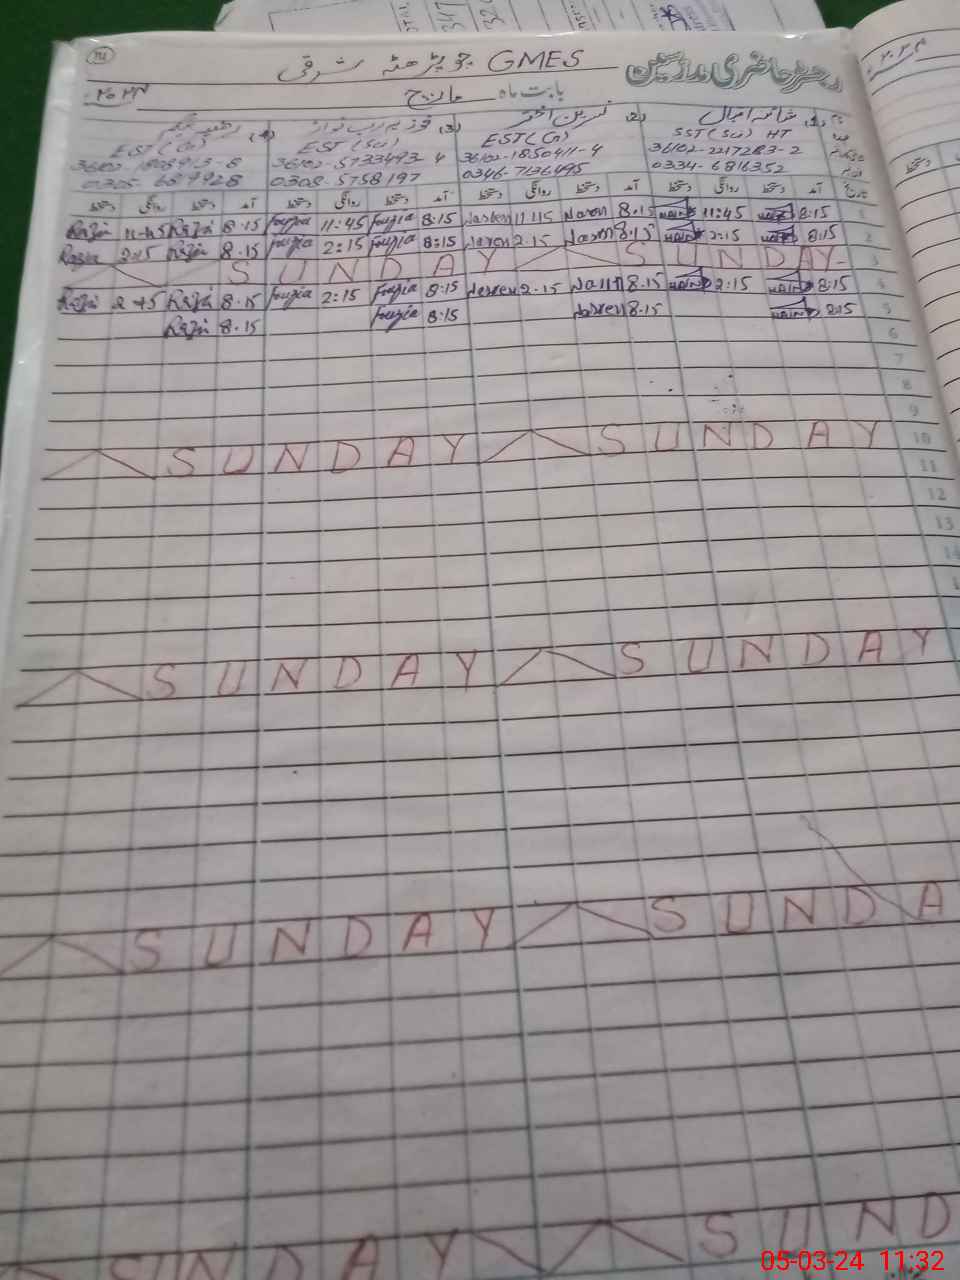 رجسٹر حاضری مدرسین GMES جوپڑھٹہ شرقی
بابت ماہ مارچ ۲۰۲۴
(1) شائستہ اقبال (2) نسرین اختر (3) فوزیہ رب نواز (4) رضیہ بیگم
SST (Sci) HT EST (G) EST (Sci) EST (G)
36102-2217283-2 36102-1850411-4 36102-5733493-4
0334-6816352 0346-7136495 0308-5758197
تاریخ آمد دستخط روانگی دستخط آمد دستخط روانگی دستخط آمد دستخط روانگی دستخط آمد دستخط روانگی دستخط
Razia 11-45 Razia 8.15 Fouzia 11:45 Fouzia 8:15 Nasren 11:15 Nasren 8.15 11:45 8:15 1
Razia 2:15 Razia 8.15 Fouzia 2:15 Fouzia 8:15 Nasren 2.15 Nasren 8:15 2:15 8:15 2
SUNDAY SUNDAY 3
Razia 2 Razia 8.15 Fouzia 2:15 Fouzia 8:15 Nasren 2.15 Nasren 8.15 2:15 8:15 4
Razia 8.15 Fouzia 8:15 Nasren 8.15 5
6
7
8
9
SUNDAY SUNDAY 10
11
12
13
14
SUNDAY SUNDAY
SUNDAY SUNDA
SUNDAY SUND
05-03-24 11:32